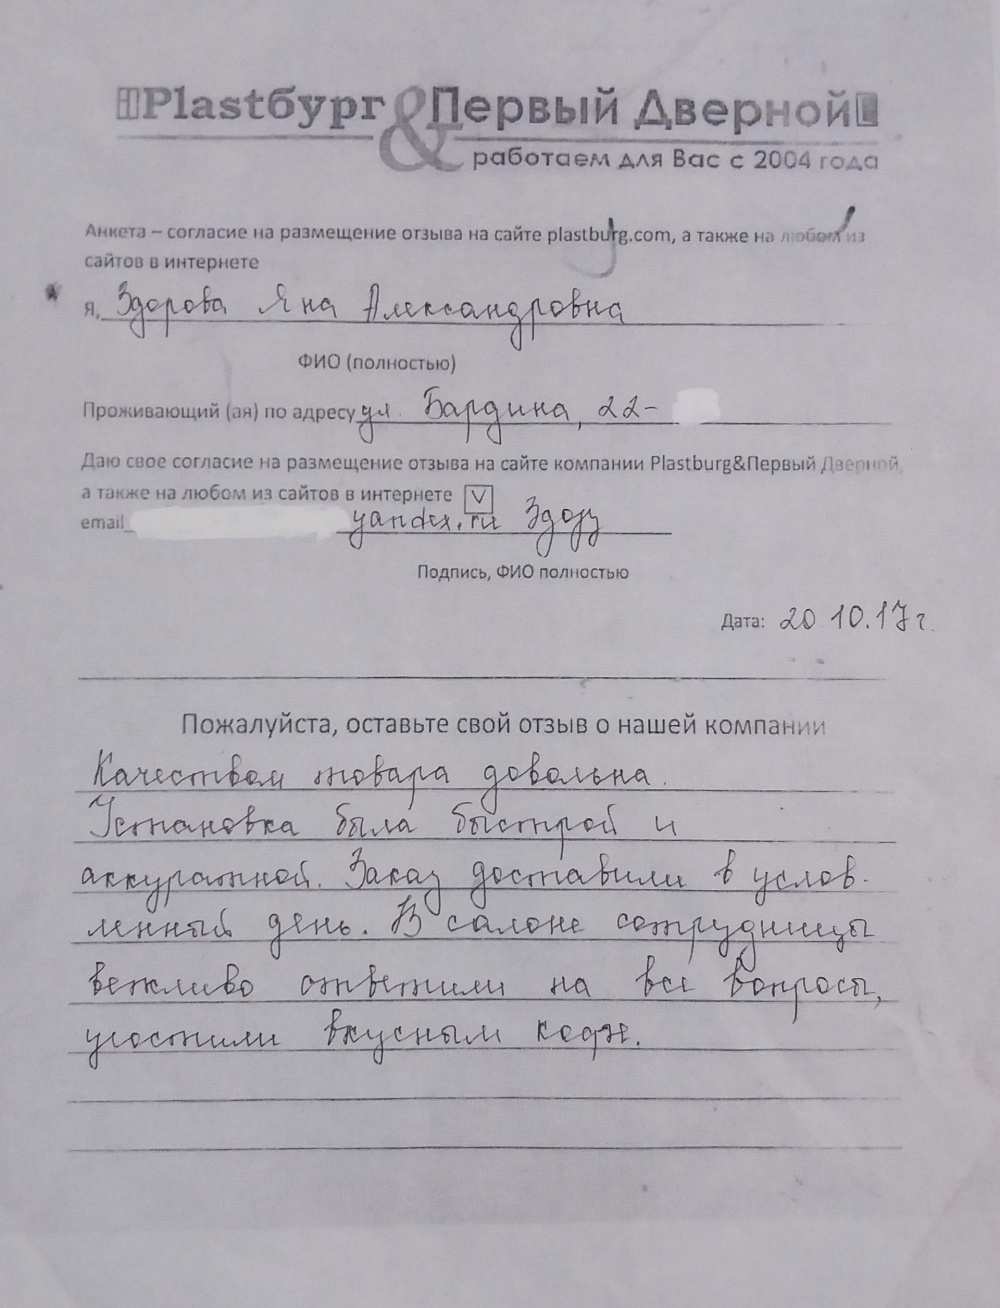 Plastбург & Первый Дверной
работаем для Вас с 2004 года
Анкета – согласие на размещение отзыва на сайте plastburg.com, а также на любом из
сайтов в интернете
я, Здорова Яна Александровна
ФИО (полностью)
Проживающий (ая) по адресу ул. Бардина, 22-
Даю свое согласие на размещение отзыва на сайте компании Plastburg&Первый Дверной,
а также на любом из сайтов в интернете V
email yandex.ru
Подпись, ФИО полностью
Дата: 20 10.17г.
Пожалуйста, оставьте свой отзыв о нашей компании
Качеством товара довольна.
Установка была быстрой и
аккуратной. Заказ доставили в услов-
ленный день. В салоне сотрудницы
вежливо ответили на все вопросы,
угостили вкусным кофе.